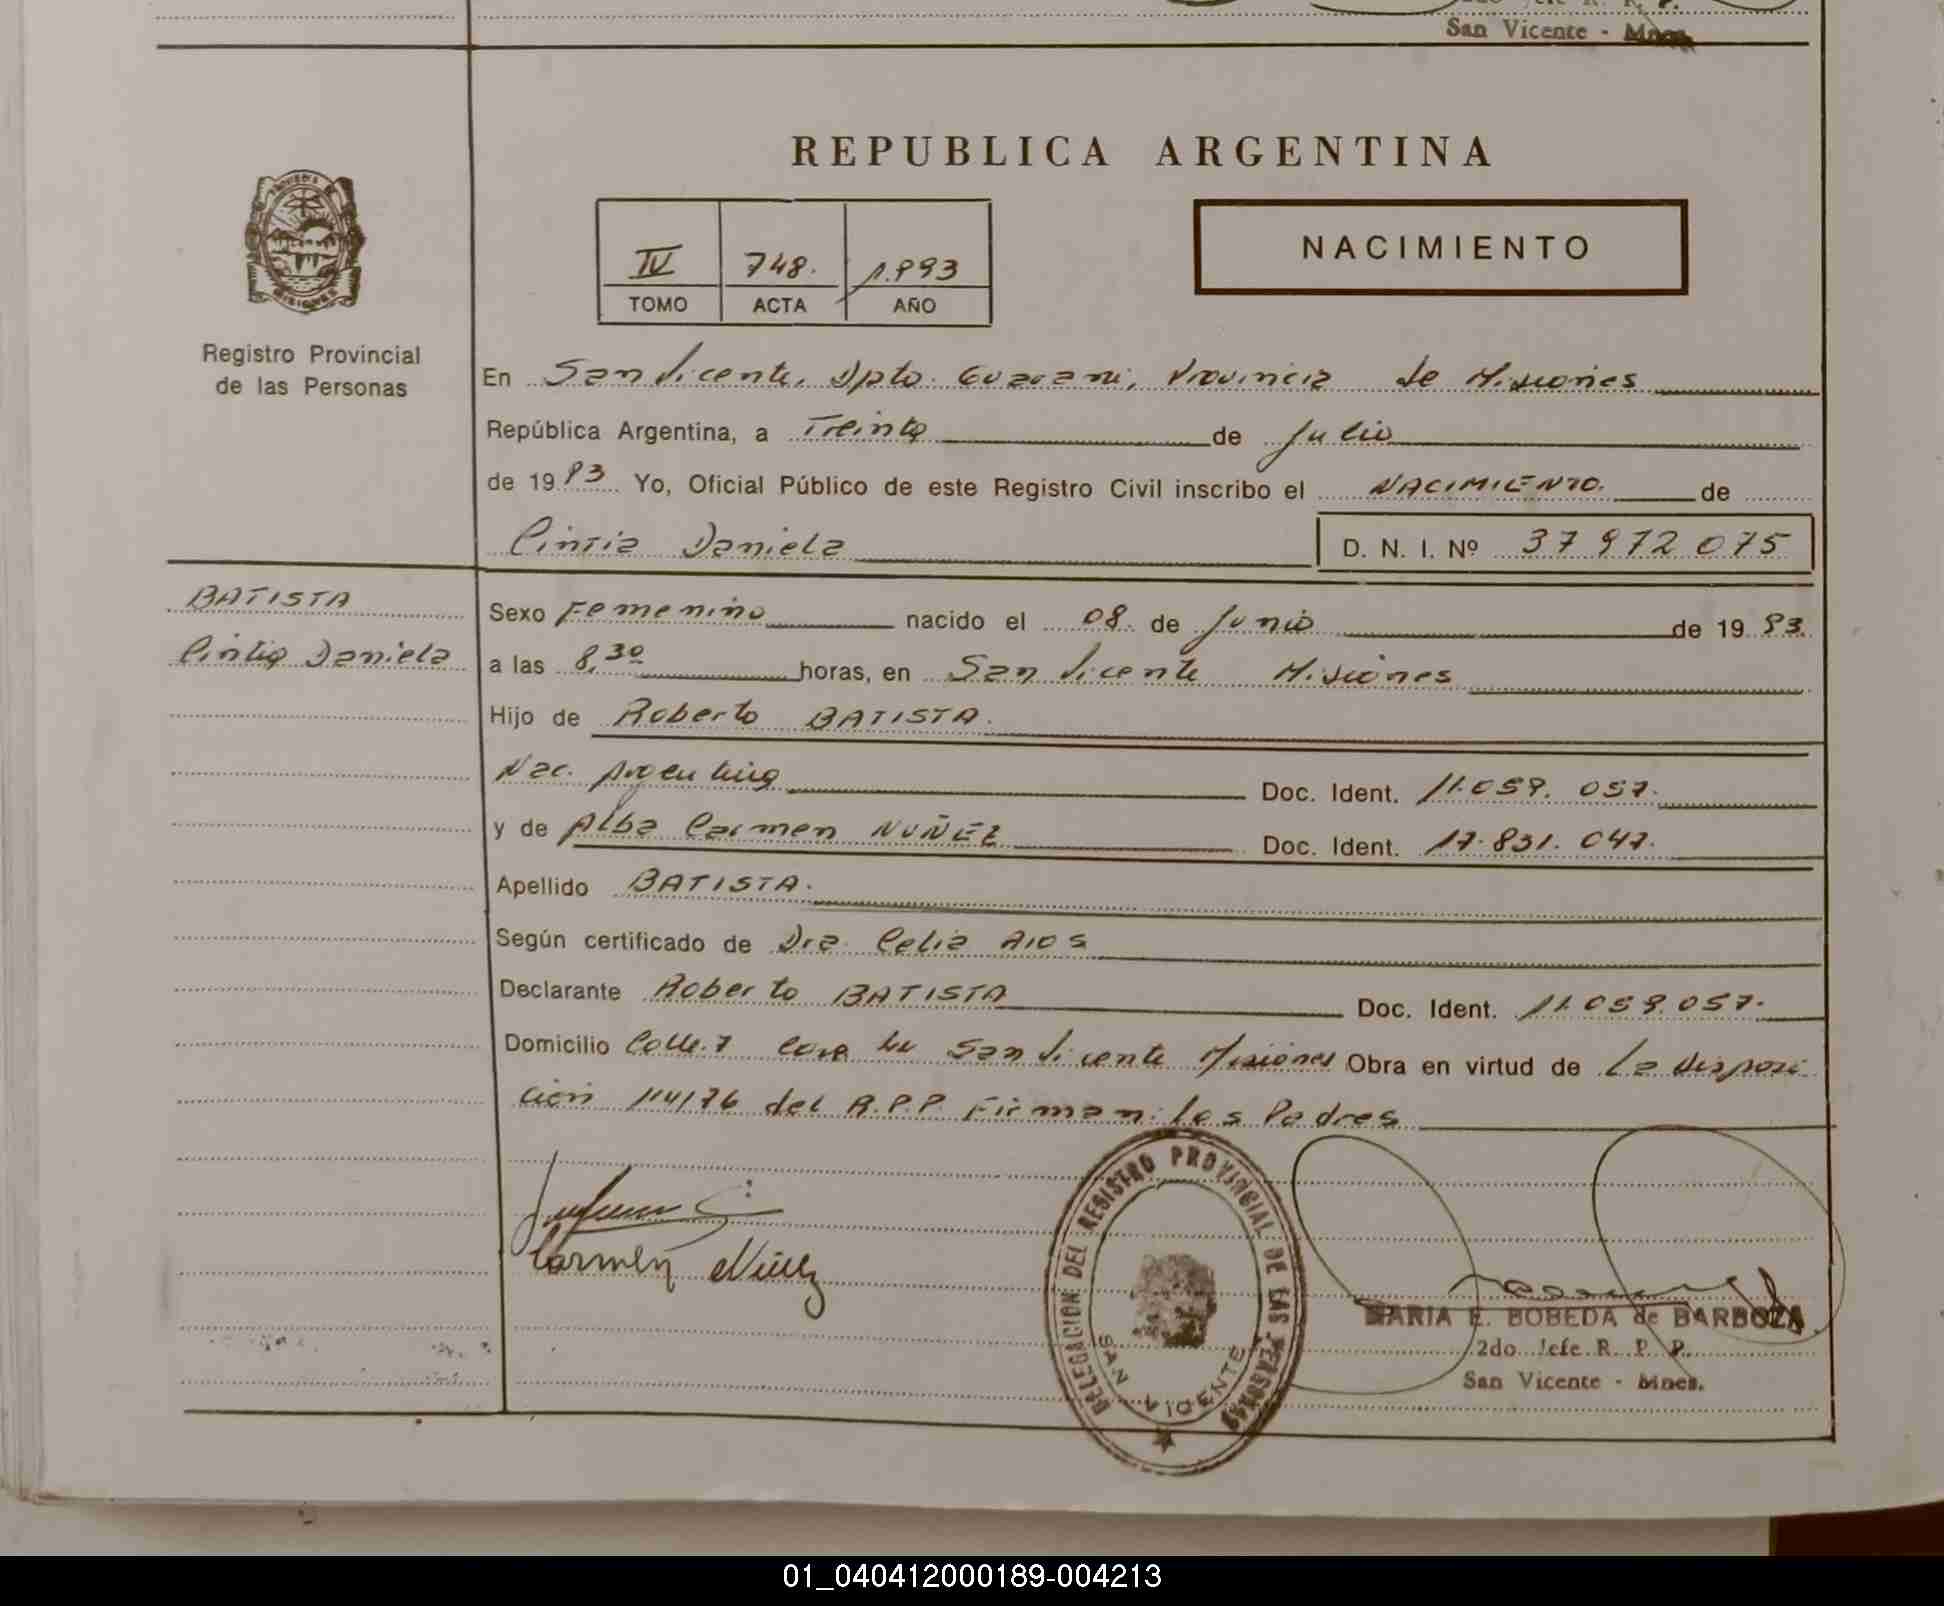 San Vicente - Mnes.
REPUBLICA ARGENTINA
IV 748. 1.993
TOMO ACTA AÑO
NACIMIENTO
Registro Provincial
de las Personas
En San Vicente, Dpto. Guarani, Provincia de Misiones
República Argentina, a Treinta de Julio
de 1993 Yo, Oficial Público de este Registro Civil inscribo el NACIMIENTO. de
Cintia Daniela D. N. I. Nº 37972075
BATISTA
Cintia Daniela
Sexo Femenino nacido el 08. de Junio de 1993.
a las 8,30 horas, en San Vicente Misiones
Hijo de Roberto BATISTA.
Nac. Argentina Doc. Ident. 11.059.057.
y de Alba Carmen NUÑEZ Doc. Ident. 17.831.047.
Apellido BATISTA.
Según certificado de Dra. Celia Rios
Declarante Roberto BATISTA Doc. Ident. 11.059.057.
Domicilio Calle.7 San Vicente Misiones Obra en virtud de La disposi
ción 114/76 del R.P.P. Firman: los Padres
Carmen Núñez
DELEGACION DEL REGISTRO PROVINCIAL DE LAS PERSONAS
SAN VICENTE
MARIA E. BOBEDA de BARBOZA
2do Jefe R. P. P.
San Vicente - Mnes.
01_040412000189-004213